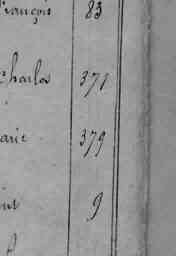 François 83
Charles 371
arie 379
9